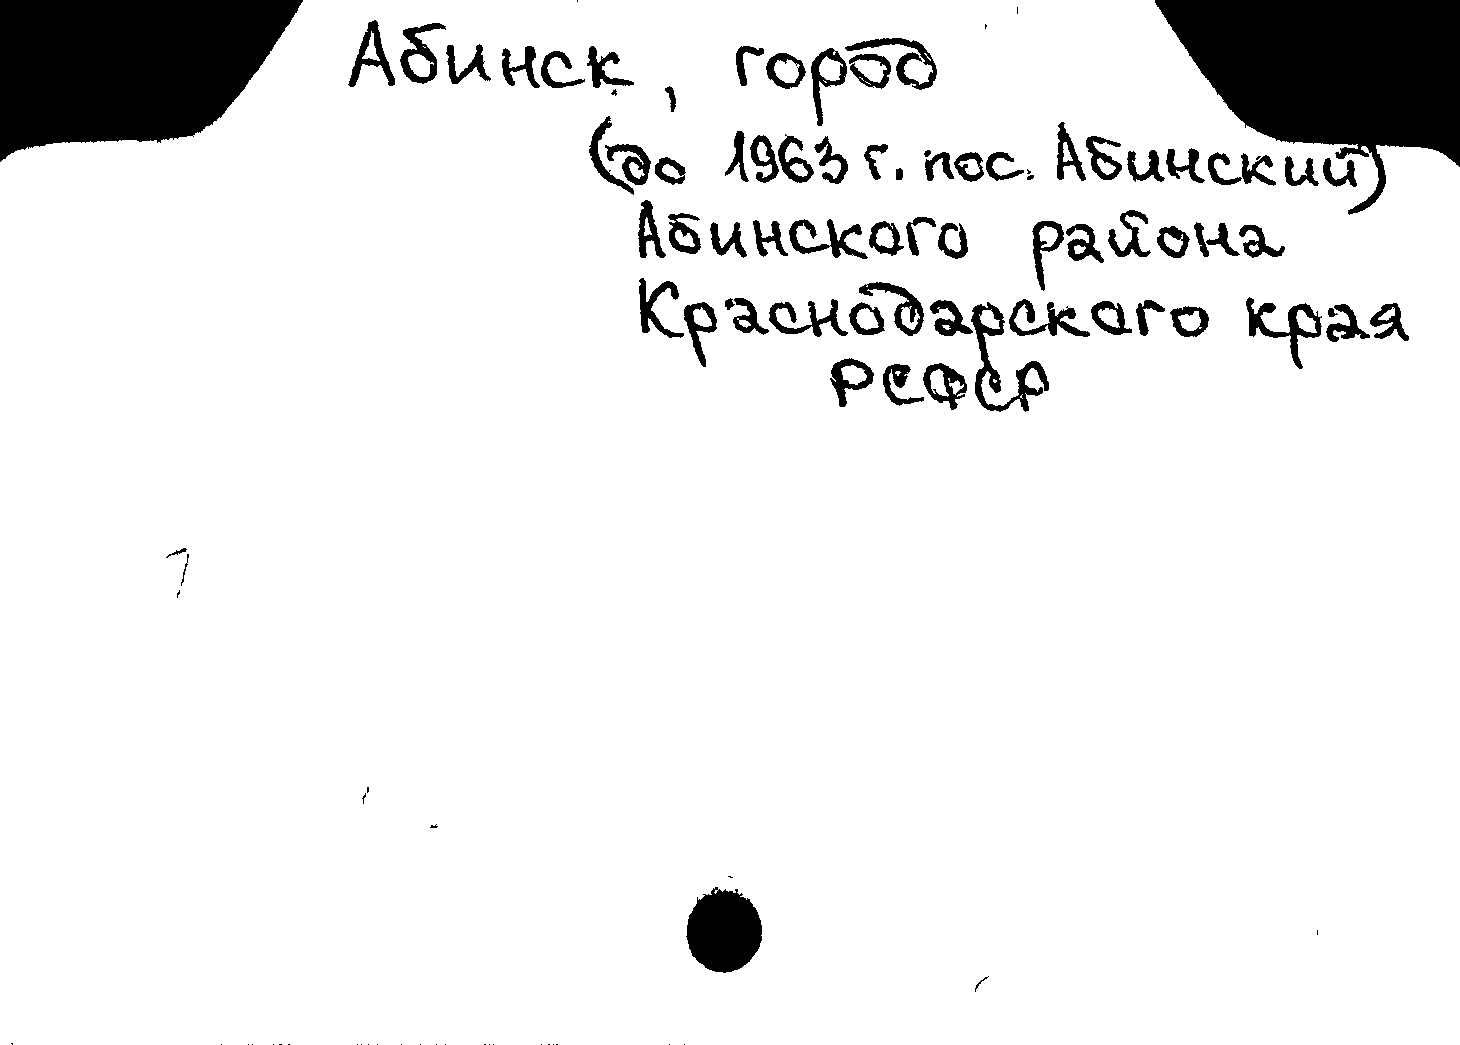 Абинск, город
(до 1963 г. пос. Абинский)
Абинского района
Краснодарского края
РСФСР